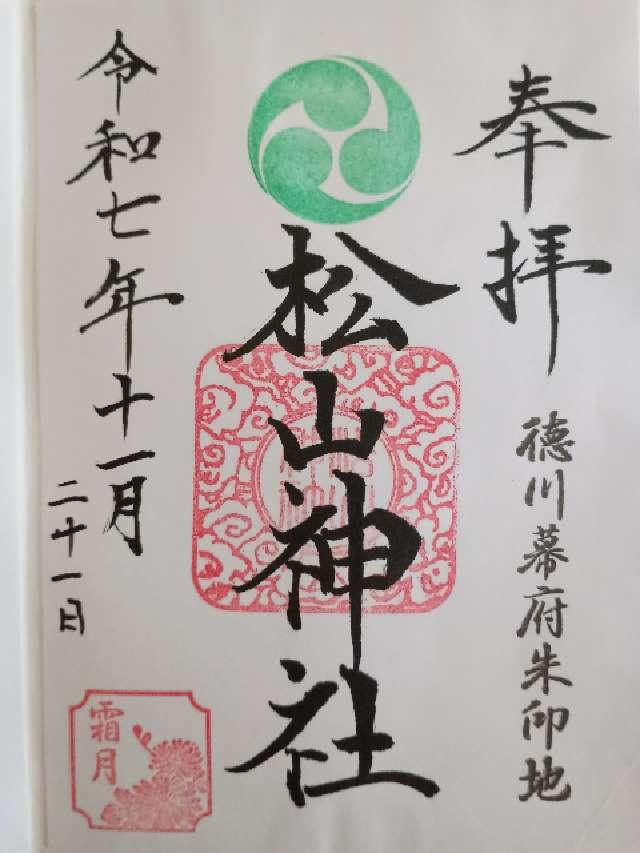 奉拝
徳川幕府朱印地
松山神社
令和七年十一月
二十一日
霜月